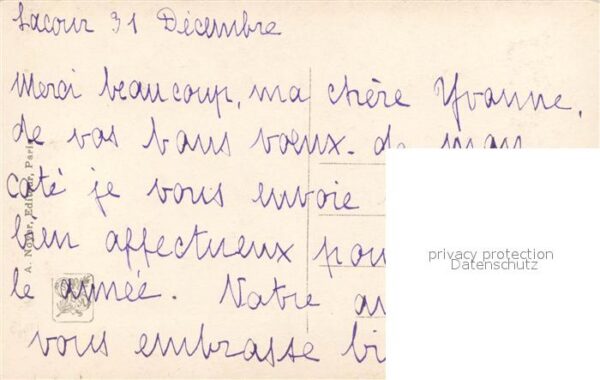 Lacour 31 Décembre
Merci beaucoup, ma chère Yvonne,
de vos bons voeux. de mon
coté je vous envoie
bien affectueux pou
le année. Votre
vous embrasse bi
A. Noyer, Editeur, Paris
privacy protection
Datenschutz